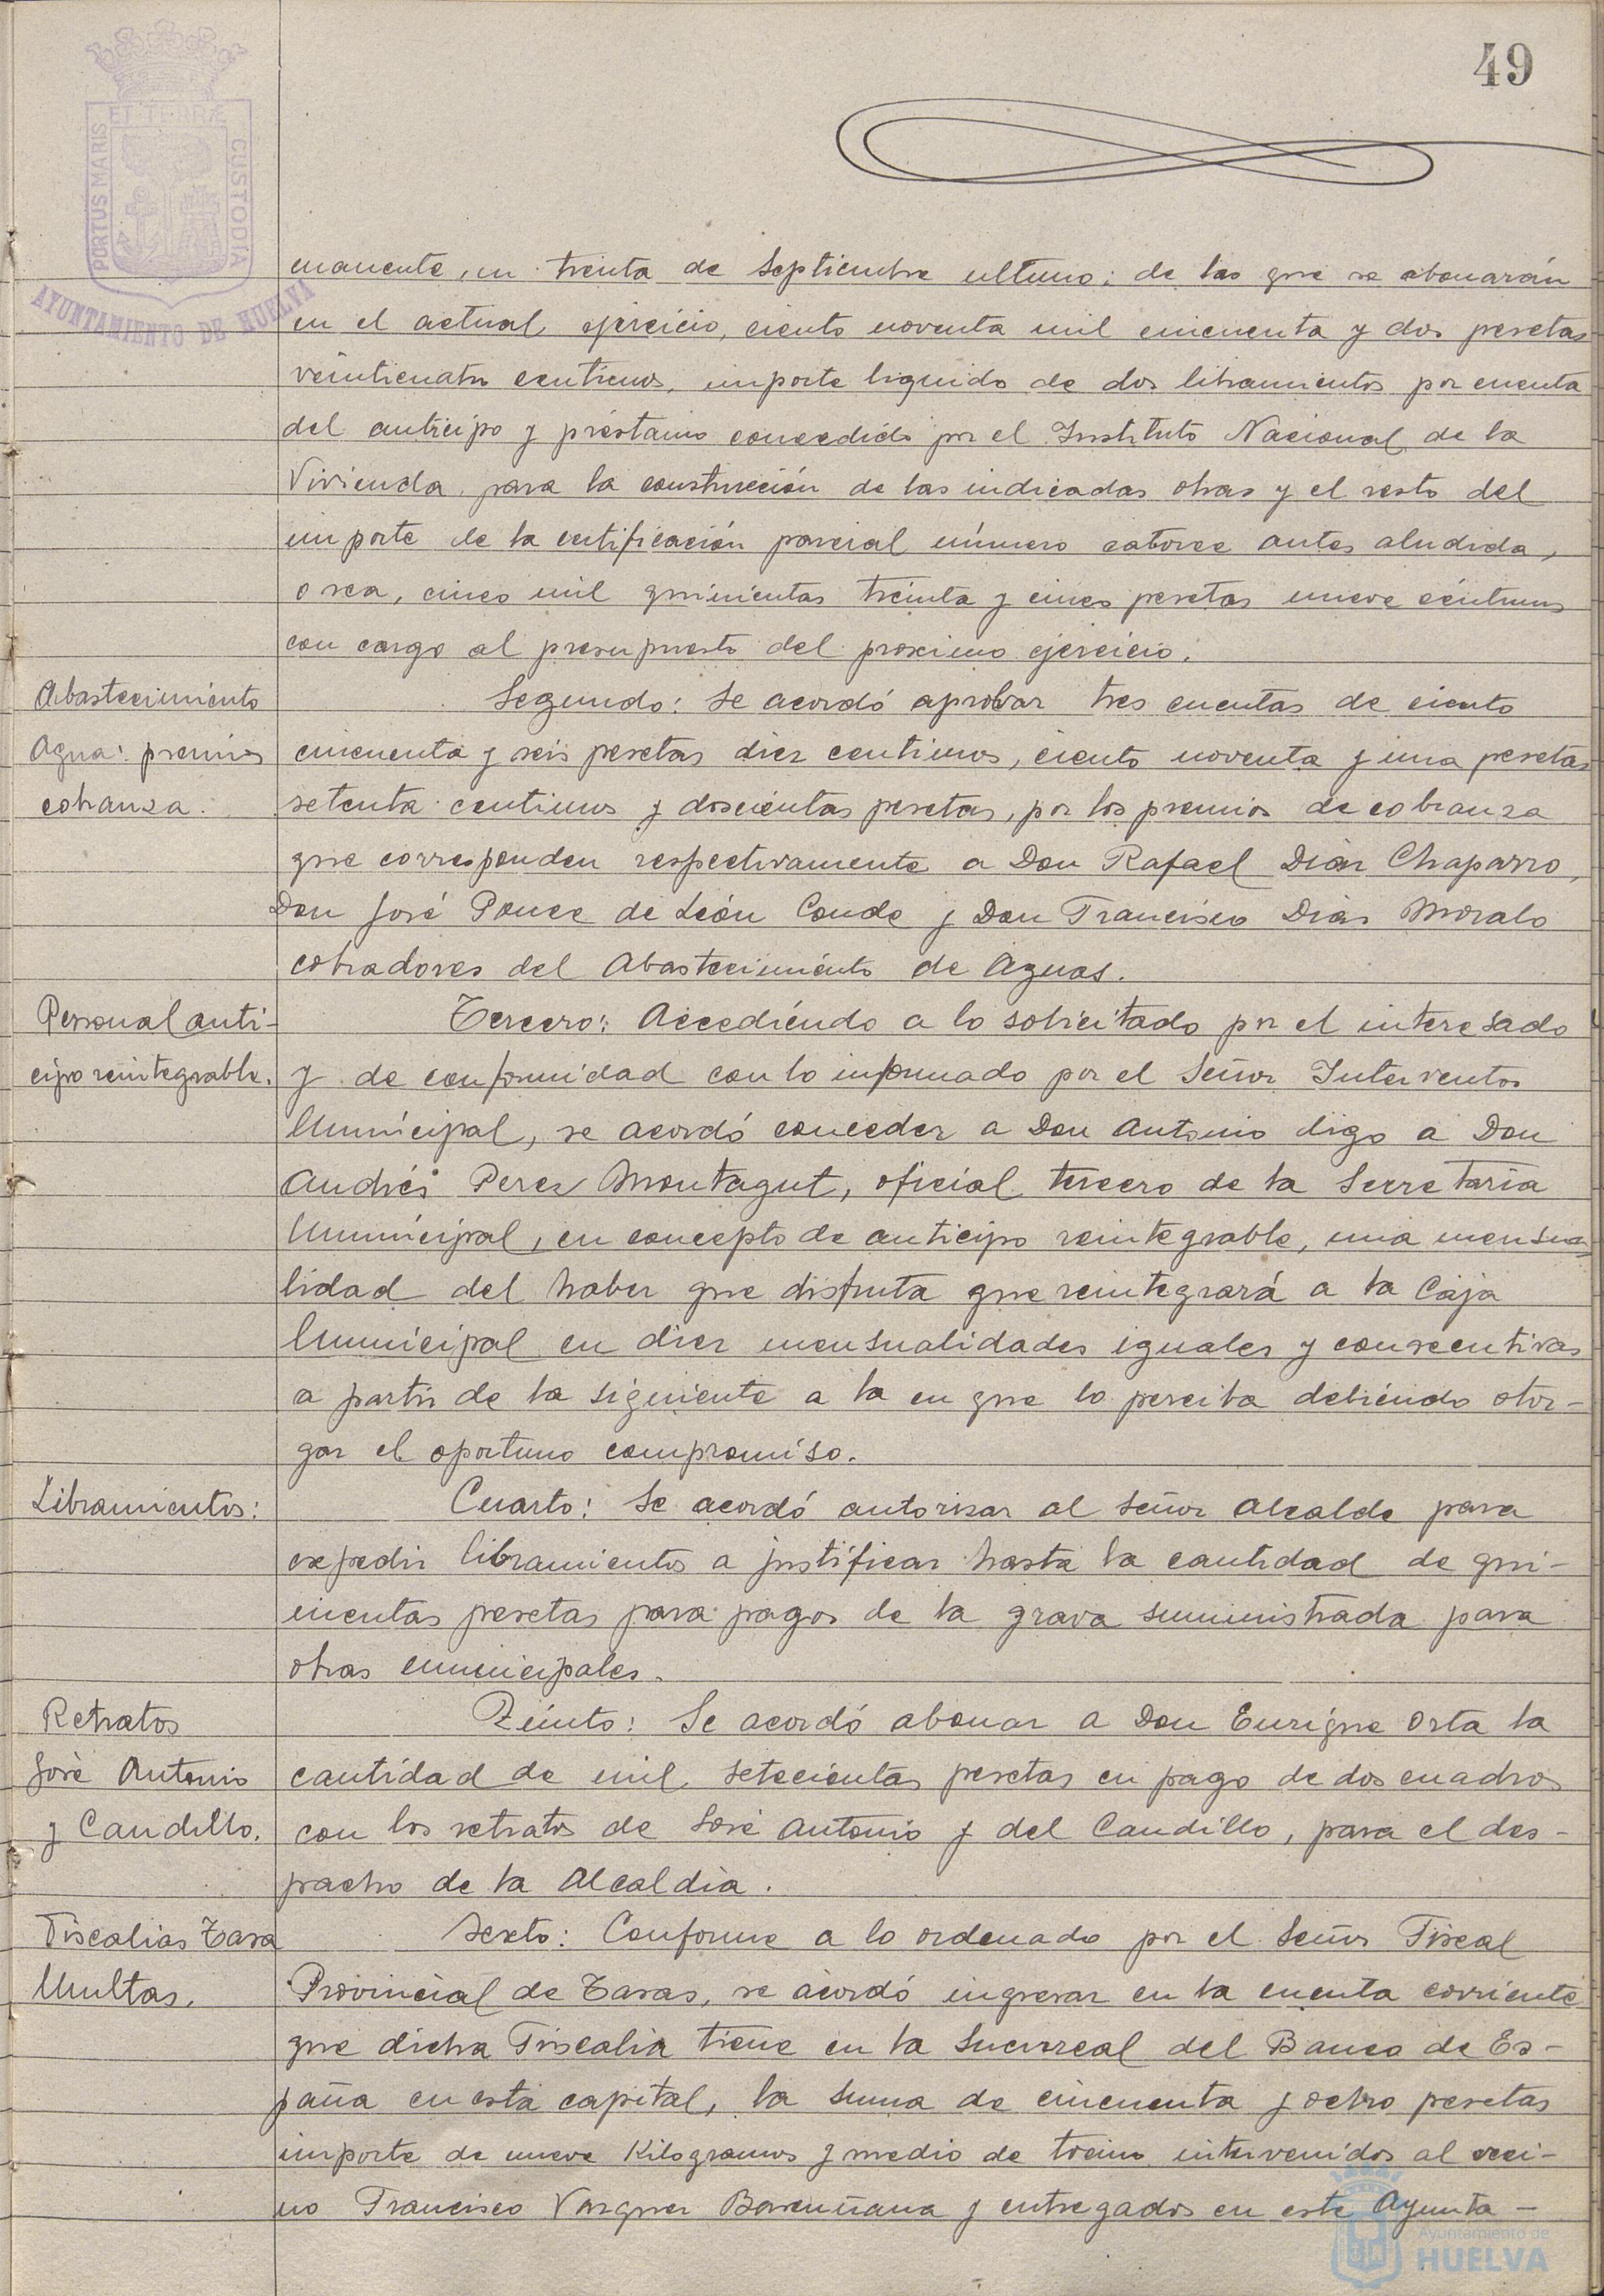 49
PORTUS MARIS
ET TERRÆ
CUSTODIA
AYUNTAMIENTO DE HUELVA
emanente, en treinta de Septiembre ultimo: de las que se abonarán
en el actual ejercicio, ciento noventa mil cincuenta y dos pesetas
veinticuatro centimos, importe liquido de dos libramientos por cuenta
del anticipo y préstamo concedido por el Instituto Nacional de la
Vivienda para la construcción de las indicadas obras y el resto del
importe de la certificación parcial número catorce antes aludida,
o sea, cinco mil quinientas treinta y cinco pesetas nueve céntimos
con cargo al presupuesto del proximo ejercicio.
Abastecimiento
Agua: premios
cobranza.
Segundo: Se acordó aprobar tres cuentas de ciento
cincuenta y seis pesetas diez centimos, ciento noventa y una pesetas
setenta centimos y doscientas pesetas, por los premios de cobranza
que corresponden respectivamente a Don Rafael Diaz Chaparro,
Don José Ponce de León Conde y Don Francisco Dias Moralo
cobradores del Abastecimiento de Aguas.
Personal anti-
cipo reintegrable.
Tercero: Accediendo a lo solicitado por el interesado
y de conformidad con lo informado por el Señor Interventor
Municipal, se acordó conceder a Don Antonio digo a Don
Andrés Perez Montagut, oficial tercero de la Secretaria
Municipal, en concepto de anticipo reintegrable, una mensua
lidad del haber que disfruta que reintegrará a la Caja
Municipal en diez mensualidades iguales y consecutivas
a partir de la siguiente a la en que lo perciba debiendo otor-
gar el oportuno compromiso.
Libramientos:
Cuarto: Se acordó autorizar al Señor Alcalde para
expedir libramientos a justificar hasta la cantidad de qui-
nientas pesetas para pagos de la grava suministrada para
obras municipales.
Retratos
José Antonio
y Caudillo.
Quinto: Se acordó abonar a Don Enrique Orta la
cantidad de mil setecientas pesetas en pago de dos cuadros
con los retratos de José Antonio y del Caudillo, para el des-
pacho de la Alcaldia.
Fiscalias Tasa
Multas.
Sexto: Conforme a lo ordenado por el Señor Fiscal
Provincial de Tasas, se acordó ingresar en la cuenta corriente
que dicha Fiscalia tiene en la Sucursal del Banco de Es-
paña en esta capital, la suma de cincuenta y ocho pesetas
importe de nueve Kilogramos y medio de tocino intervenidos al veci-
no Francisco Vazquez y entregados en este Ayunta-
Ayuntamiento de
HUELVA